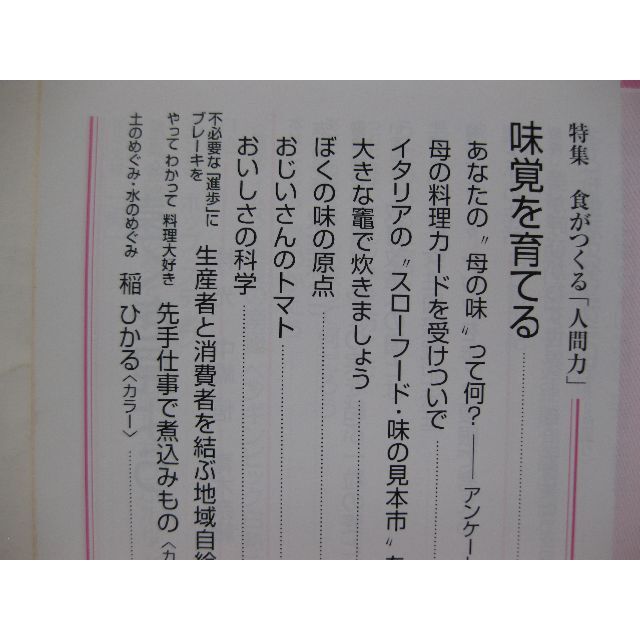 特集 食がつくる「人間力」
味覚を育てる
あなたの〝母の味〟って何?――アンケー
母の料理カードを受けついで
イタリアの〝スローフード・味の見本市〟
大きな竈で炊きましょう
ぼくの味の原点
おじいさんのトマト
おいしさの科学
不必要な「進歩」に
ブレーキを
生産者と消費者を結ぶ地域自給
やって わかって 料理大好き
先手仕事で煮込みもの〈カ
土のめぐみ・水のめぐみ
稲 ひかる〈カラー〉